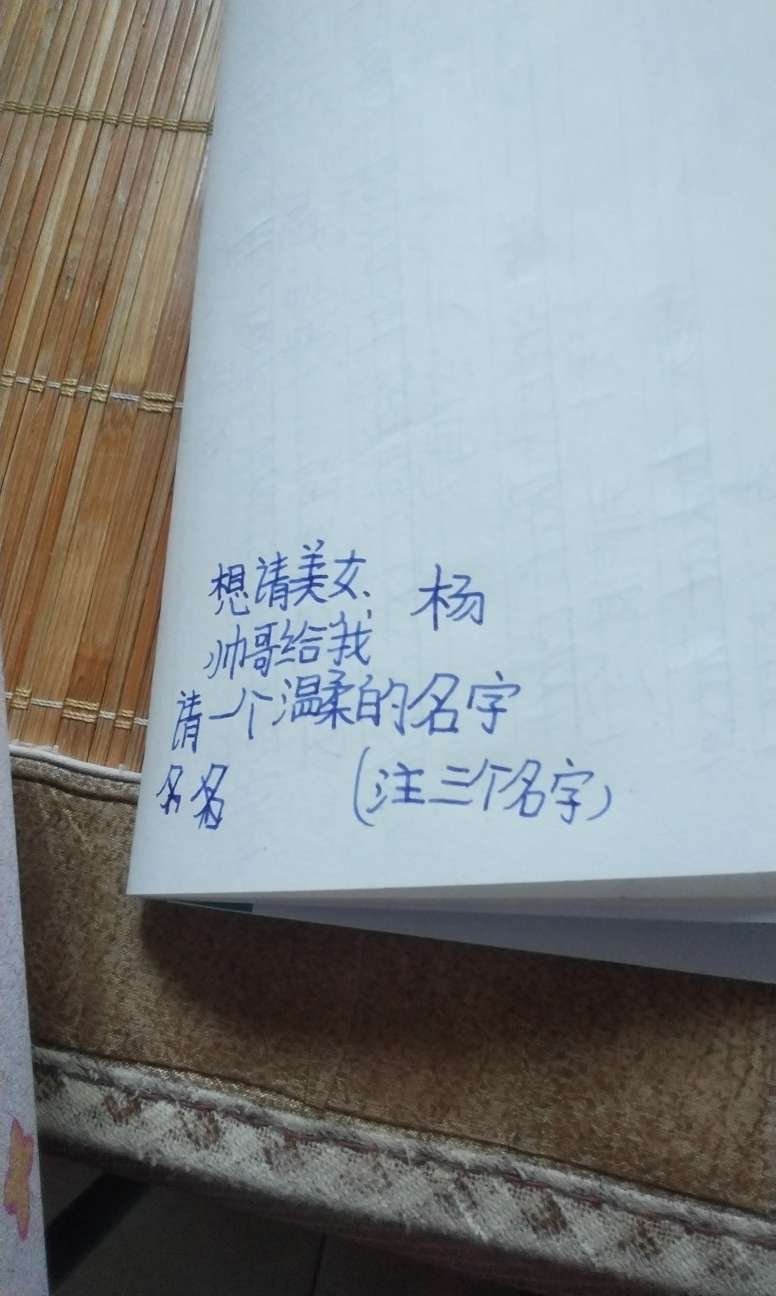 想请美女、
杨
帅哥给我
请一个温柔的名字
名名
(注三个名字)